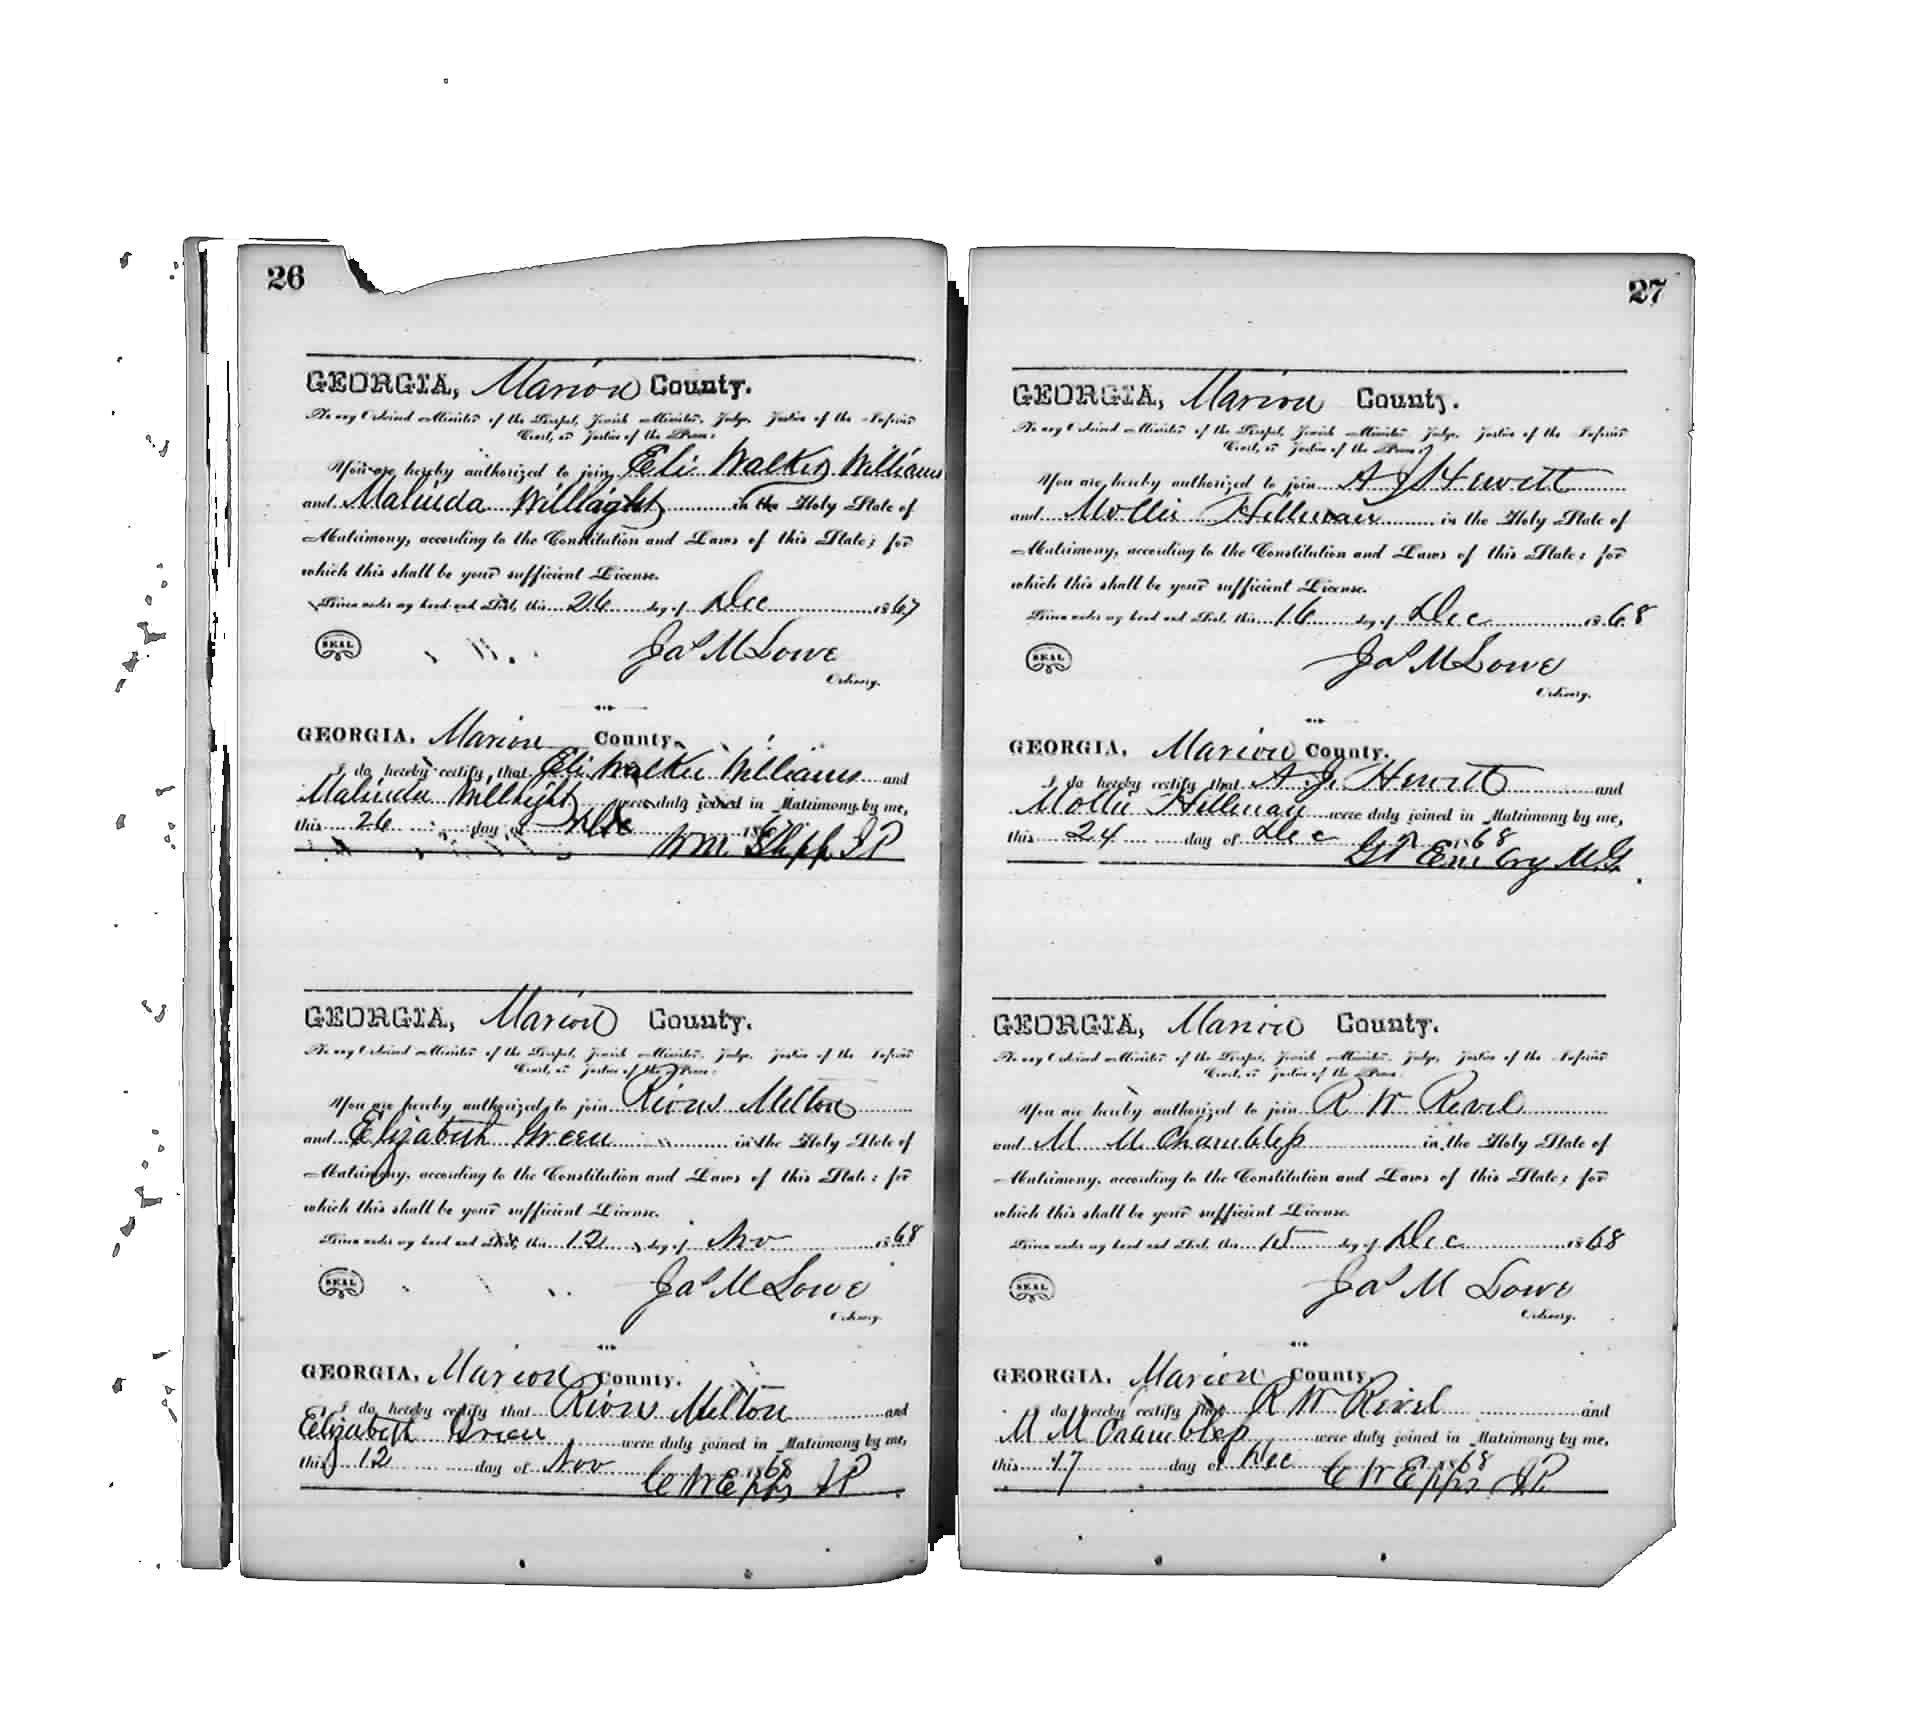 26
GEORGIA, Marion County.
To any Ordained Minister of the Gospel, Jewish Minister, Judge, Justice of the Inferior
Court, or Justice of the Peace:
You are hereby authorized to join Eli Walker Williams
and Malinda in the Holy State of
Matrimony, according to the Constitution and Laws of this State; for
which this shall be your sufficient License.
Given under my hand and Seal, this 26 day of Dec 1867
SEAL
Jas M Lowe
Ordinary.
GEORGIA, Marion County.
I do hereby certify that Eli Walker Williams and
Malinda were duly joined in Matrimony by me,
this 26 day of Dec 1867
Wm J P
GEORGIA, Marion County.
To any Ordained Minister of the Gospel, Jewish Minister, Judge, Justice of the Inferior
Court, or Justice of the Peace:
You are hereby authorized to join Melton
and Elizabeth Green in the Holy State of
Matrimony, according to the Constitution and Laws of this State; for
which this shall be your sufficient License.
Given under my hand and Seal, this 12 day of Nov 1868
SEAL
Jas M Lowe
Ordinary.
GEORGIA, Marion County.
I do hereby certify that Melton and
Elizabeth Green were duly joined in Matrimony by me,
this 12 day of Nov 1868
C W Epps J P
27
GEORGIA, Marion County.
To any Ordained Minister of the Gospel, Jewish Minister, Judge, Justice of the Inferior
Court, or Justice of the Peace:
You are hereby authorized to join A J Hewett
and Mollie Hillman in the Holy State of
Matrimony, according to the Constitution and Laws of this State; for
which this shall be your sufficient License.
Given under my hand and Seal, this 16 day of Dec 1868
SEAL
Jas M Lowe
Ordinary.
GEORGIA, Marion County.
I do hereby certify that A. J. Hewett and
Mollie Hillman were duly joined in Matrimony by me,
this 24 day of Dec 1868
M.G.
GEORGIA, Marion County.
To any Ordained Minister of the Gospel, Jewish Minister, Judge, Justice of the Inferior
Court, or Justice of the Peace:
You are hereby authorized to join R W Revel
and M M Chambless in the Holy State of
Matrimony, according to the Constitution and Laws of this State; for
which this shall be your sufficient License.
Given under my hand and Seal, this 15 day of Dec 1868
SEAL
Jas M Lowe
Ordinary.
GEORGIA, Marion County.
I do hereby certify that R W Revel and
M M Chambless were duly joined in Matrimony by me,
this 17 day of Dec 1868
C W Epps J.P.